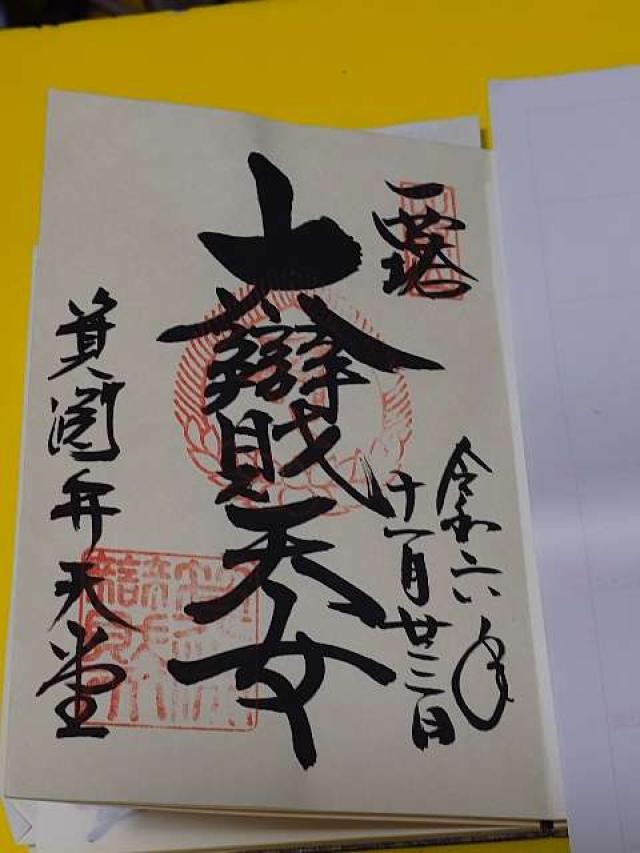 大辯財天女
令和六年
十一月廿三日
箕面弁天堂